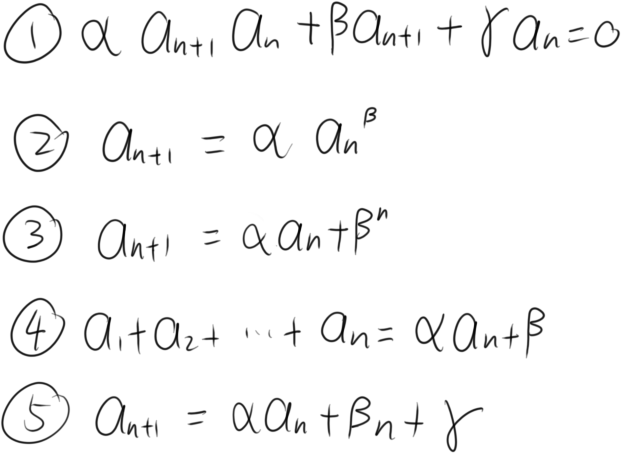 ① α aₙ₊₁ aₙ + βaₙ₊₁ + γ aₙ = 0
② aₙ₊₁ = α aₙ^β
③ aₙ₊₁ = αaₙ + βⁿ
④ a₁ + a₂ + ··· + aₙ = αaₙ + β
⑤ aₙ₊₁ = αaₙ + βn + γ